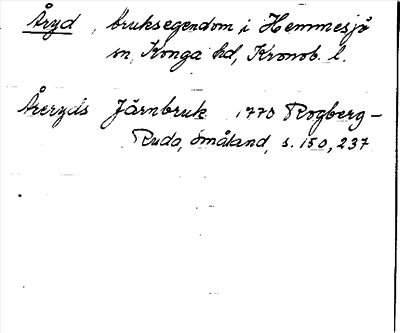 Åryd, bruksegendom i Hemmesjö
sn, Konga hd, Kronob. l.
Åreryds Järnbruk 1770 Rogberg-
Ruda, Småland, s. 150, 237